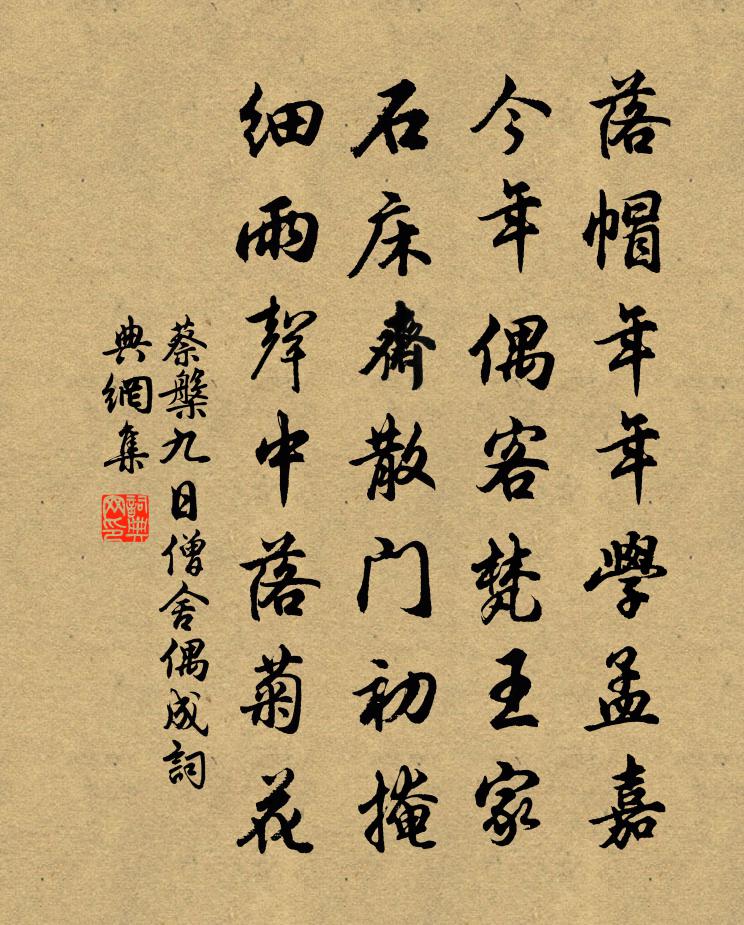 落帽年年學孟嘉
今年偶客梵王家
石床齋散门初掩
細雨聲中落菊花
蔡槃九日僧舍偶成詞
典網集
詞典网印